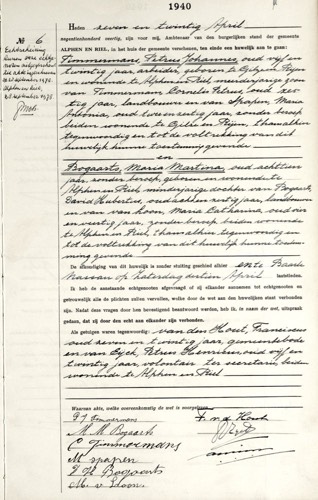 1940
No 6
Heden zeven en twintig April
negentienhonderd veertig, zijn voor mij, Ambtenaar van den burgerlijken stand der gemeente
ALPHEN EN RIEL, in het huis der gemeente verschenen, ten einde een huwelijk aan te gaan:
Timmermans, Petrus Johannes, oud vijf en
twintig jaar, arbeider, geboren te Gilze en Rijen
en wonende te Alphen en Riel, meerderjarige zoon
van Timmermans, Cornelis Petrus, oud zes
tig jaar, landbouwer en van Spapen, Maria
Antonia, oud twee en zestig jaar, zonder beroep
beiden wonende te Gilze en Rijen, thans alhier
tegenwoordig en tot de voltrekking van dit
huwelijk hunne toestemming gevende
en
Bogaarts, Maria Martina, oud achttien
jaar, zonder beroep, geboren en wonende te
Alphen en Riel, minderjarige dochter van Bogaarts,
David Hubertus, oud acht en veertig jaar, landbouwer
en van van Loon, Maria Catharina, oud
en veertig jaar, zonder beroep, beiden wonende
te Alphen en Riel, thans alhier tegenwoordig en
tot de voltrekking van dit huwelijk hunne toestem
ming gevende
De afkondiging van dit huwelijk is zonder stuiting geschied alhier en te Baarle
Nassau op Zaterdag dertien April laatstleden.
Ik heb de aanstaande echtgenooten afgevraagd of zij elkander aannemen tot echtgenooten en
getrouwelijk alle de plichten zullen vervullen, welke door de wet aan den huwelijken staat verbonden
zijn. Nadat deze vragen door hen bevestigend beantwoord werden, heb ik, in naam der wet, uitspraak
gedaan, dat zij door den echt aan elkander zijn verbonden.
Als getuigen waren tegenwoordig: van den Hout, Franciscus
oud zeven en twintig jaar, gemeentebode
en van Eyck, Petrus Henricus, oud vijf en
twintig jaar, volontair ter secretarie, beiden
wonende te Alphen en Riel
Waarvan akte, welke overeenkomstig de wet is voorgelezen.
P J Timmermans
M. M. Bogaarts
C Timmermans
M Spapen
D H Bogaarts
M. v. Loon
F. v d Hout